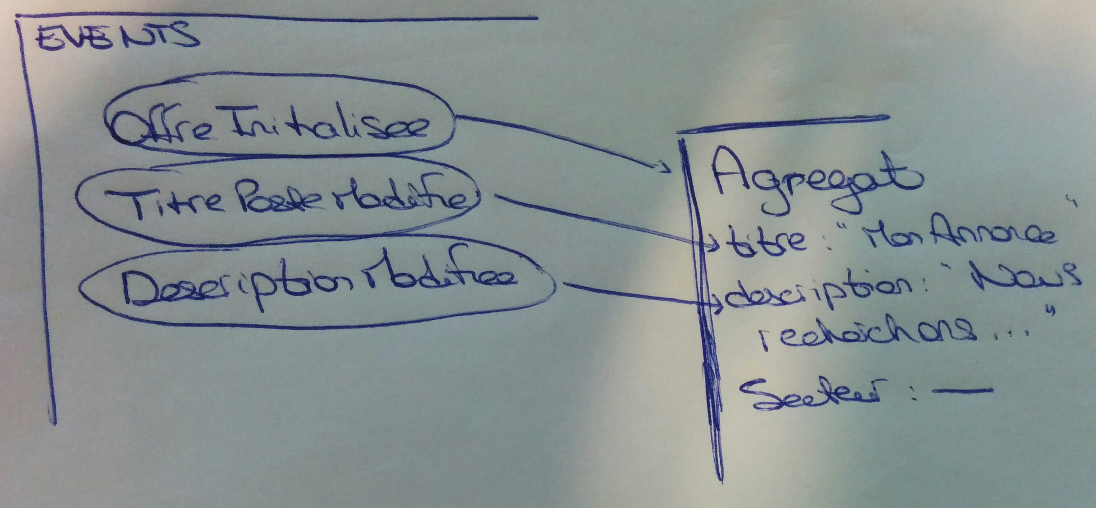 EVENTS
Offre Initialisee
Titre Poste Modifie
Description Modifiee
Agregat
titre : "Mon Annonce"
description : "Nous
recherchons ..."
Secteur : —